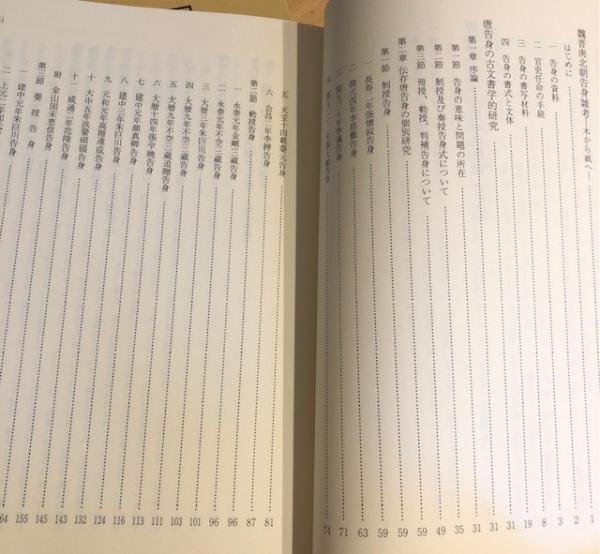 魏晋南北朝告身雑考―木から紙へ―
はじめに 1
一 告身の資料 2
二 官吏任命の手続 3
三 告身の書写材料 8
四 告身の書式と文体 19
唐告身の古文書学的研究 31
第一章 序論 31
第一節 告身の意味と問題の所在 31
第二節 制授及び奏授告身式について 35
第三節 冊授、勅授、判補告身について 49
第二章 伝存唐告身の個別研究 59
第一節 制授告身 59
一 長寿二年張懐寂告身 59
二 開元四年李慈藝告身 63
三 開元二十年李暹告身 71
四 74
五 天宝十四載秦元告身
六 会昌二年李紳告身
第二節 勅授告身
一 永泰元年金剛三蔵告身
二 永泰元年不空三蔵告身
三 大暦三年朱巨川告身
四 大暦九年不空三蔵告身
五 大暦九年不空三蔵追贈告身
六 大暦十四年張令暁告身
七 建中元年顔真卿告身
八 建中三年朱巨川告身
九 元和元年高階遠成告身
十 大中五年洪䛒碩願告身
十一 咸通二年范隋告身
附 金山国宋恵信告身
第三節 奏授告身
一 建中元年朱巨川告身
二 上元二年
64 155 145 145 143 132 124 116 113 111 103 101 96 96 87 81